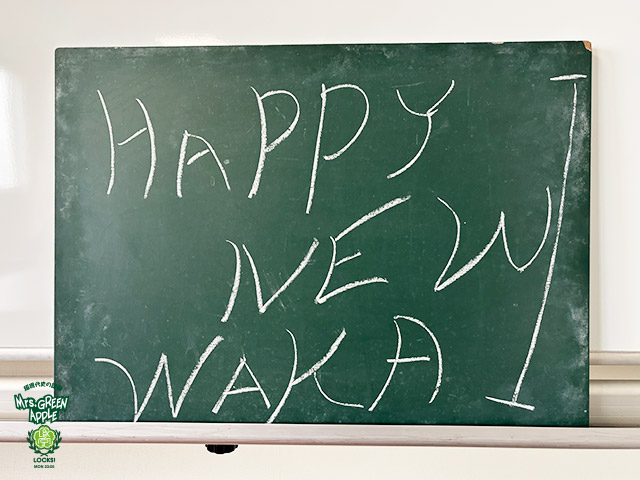 HAPPY
NEW
WAKA I
Mrs. GREEN
APPLE
LOCKS!